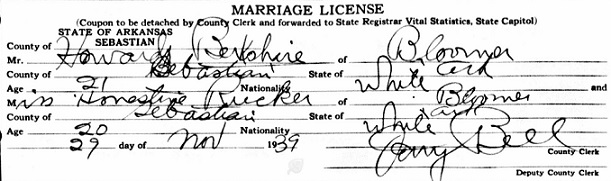 MARRIAGE LICENSE
(Coupon to be detached by County Clerk and forwarded to State Registrar Vital Statistics, State Capitol)
STATE OF ARKANSAS
County of SEBASTIAN
Mr. Howard Berkshire of Bloomer
County of Sebastian State of Ark
Age 21 Nationality White and
Miss Honestine Rucker of Bloomer
County of Sebastian State of Ark
Age 20 Nationality White
29 day of Nov 1939
Jerry Bell County Clerk
Deputy County Clerk